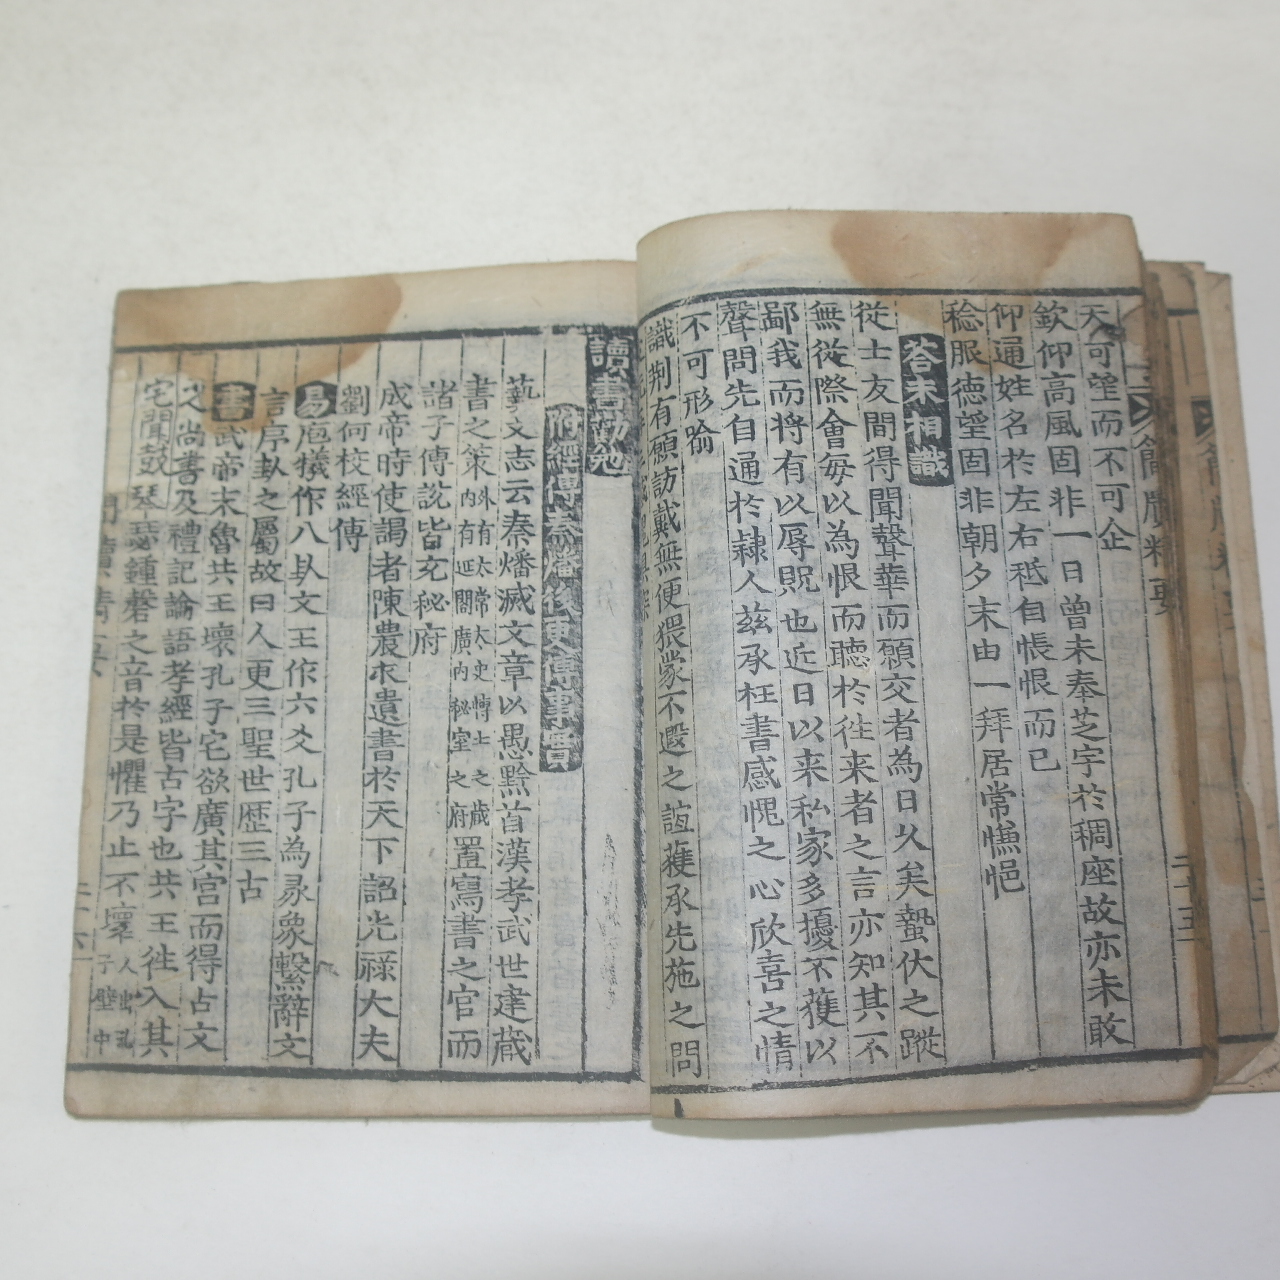 簡牘精要
二十五
天可望而不可企
欽仰高風固非一日曾未奉芝宇於稠座故亦未敢
仰通姓名於左右秪自悵恨而已
稔服德望固非朝夕末由一拜居常慊悒
答未相識
從士友間得聞聲華而願交者為日久矣蟄伏之蹤
無從際會每以為恨而聽於徃来者之言亦知其不
鄙我而將有以辱貺也近日以来私家多擾不獲以
聲問先自通於隷人兹承枉書感愧之心欣喜之情
不可形喩
識荆有願訪戴無便猥蒙不遐之誼獲承先施之問
讀書
藝文志云秦燔滅文章以愚黔首漢孝武世建蔵
書之策外有太常太史博士之蔵内有延閣廣内秘室之府置寫書之官而
諸子傳說皆充秘府
成帝時使謁者陳農求遺書於天下詔光禄大夫
劉何校經傳
易庖犧作八卦文王作六爻孔子為彖象繫辭文
言序卦之屬故曰人更三聖世歴三古
書武帝末魯共王壞孔子宅欲廣其宫而得古文
尚書及禮記論語孝經皆古字也共王徃入其
宅聞鼓琴瑟鍾磬之音於是懼乃止不壞